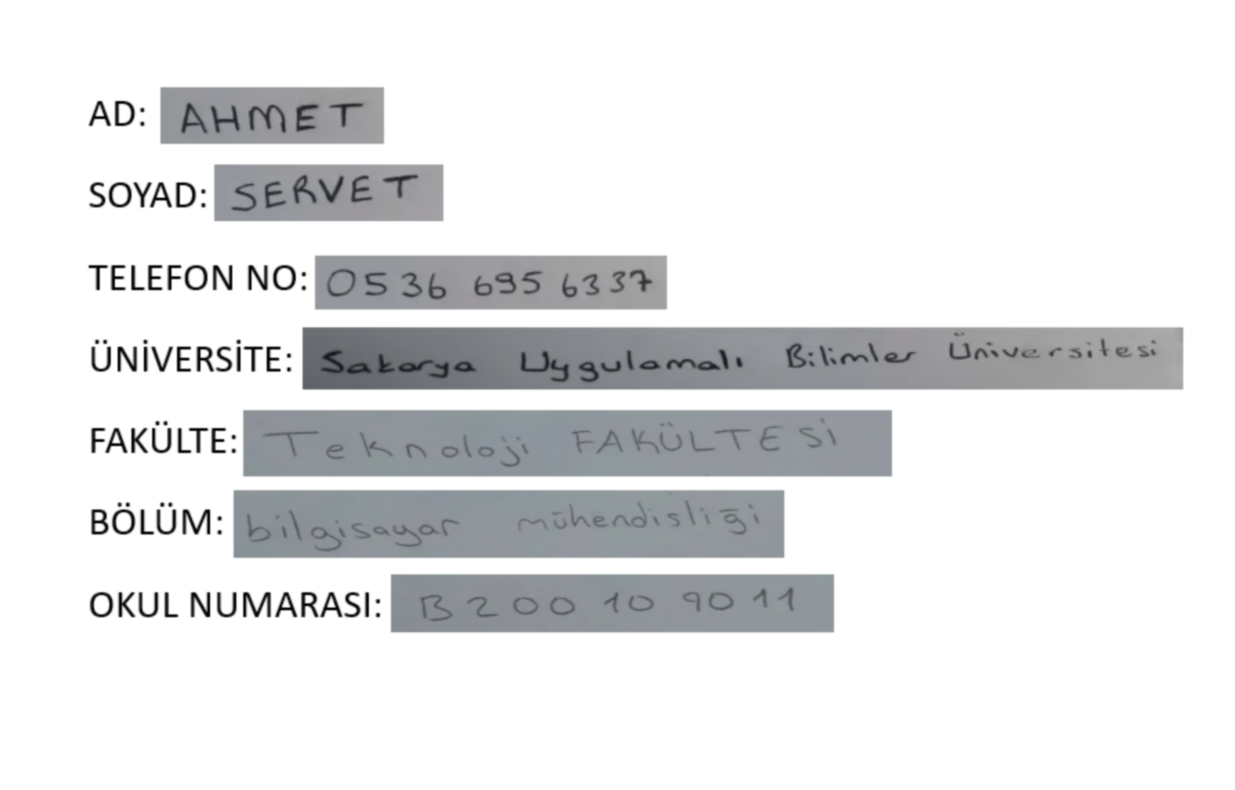 AD: AHMET
SOYAD: SERVET
TELEFON NO: 0536 695 6337
ÜNİVERSİTE: Sakarya Uygulamalı Bilimler Üniversitesi
FAKÜLTE: Teknoloji FAKÜLTESİ
BÖLÜM: bilgisayar mühendisliği
OKUL NUMARASI: B200109011